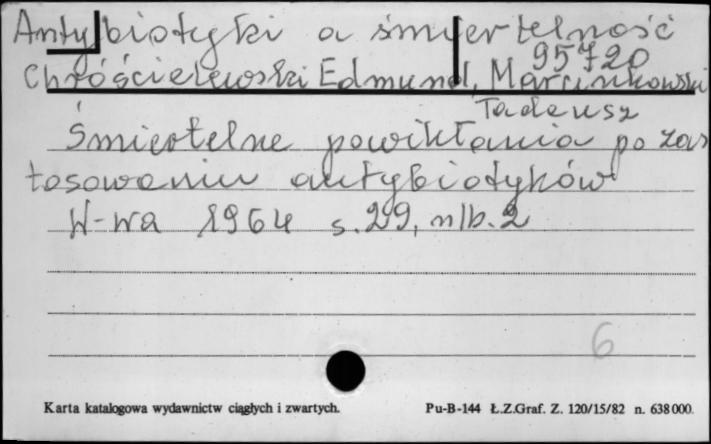 Antybiotyki a śmiertelność
95720
Chróścielewski Edmund, Marcinkowski
Tadeusz
Śmiertelne powikłania po zas
tosowaniu antybiotyków
W-wa 1964 s. 29, nlb. 2
6
Karta katalogowa wydawnictw ciągłych i zwartych. Pu-B-144 Ł.Z.Graf. Z. 120/15/82 n. 638000.